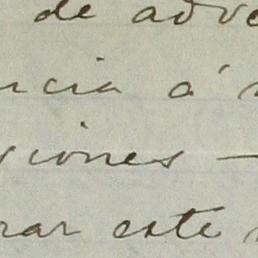 de adve
ncia á
siones —
rar este